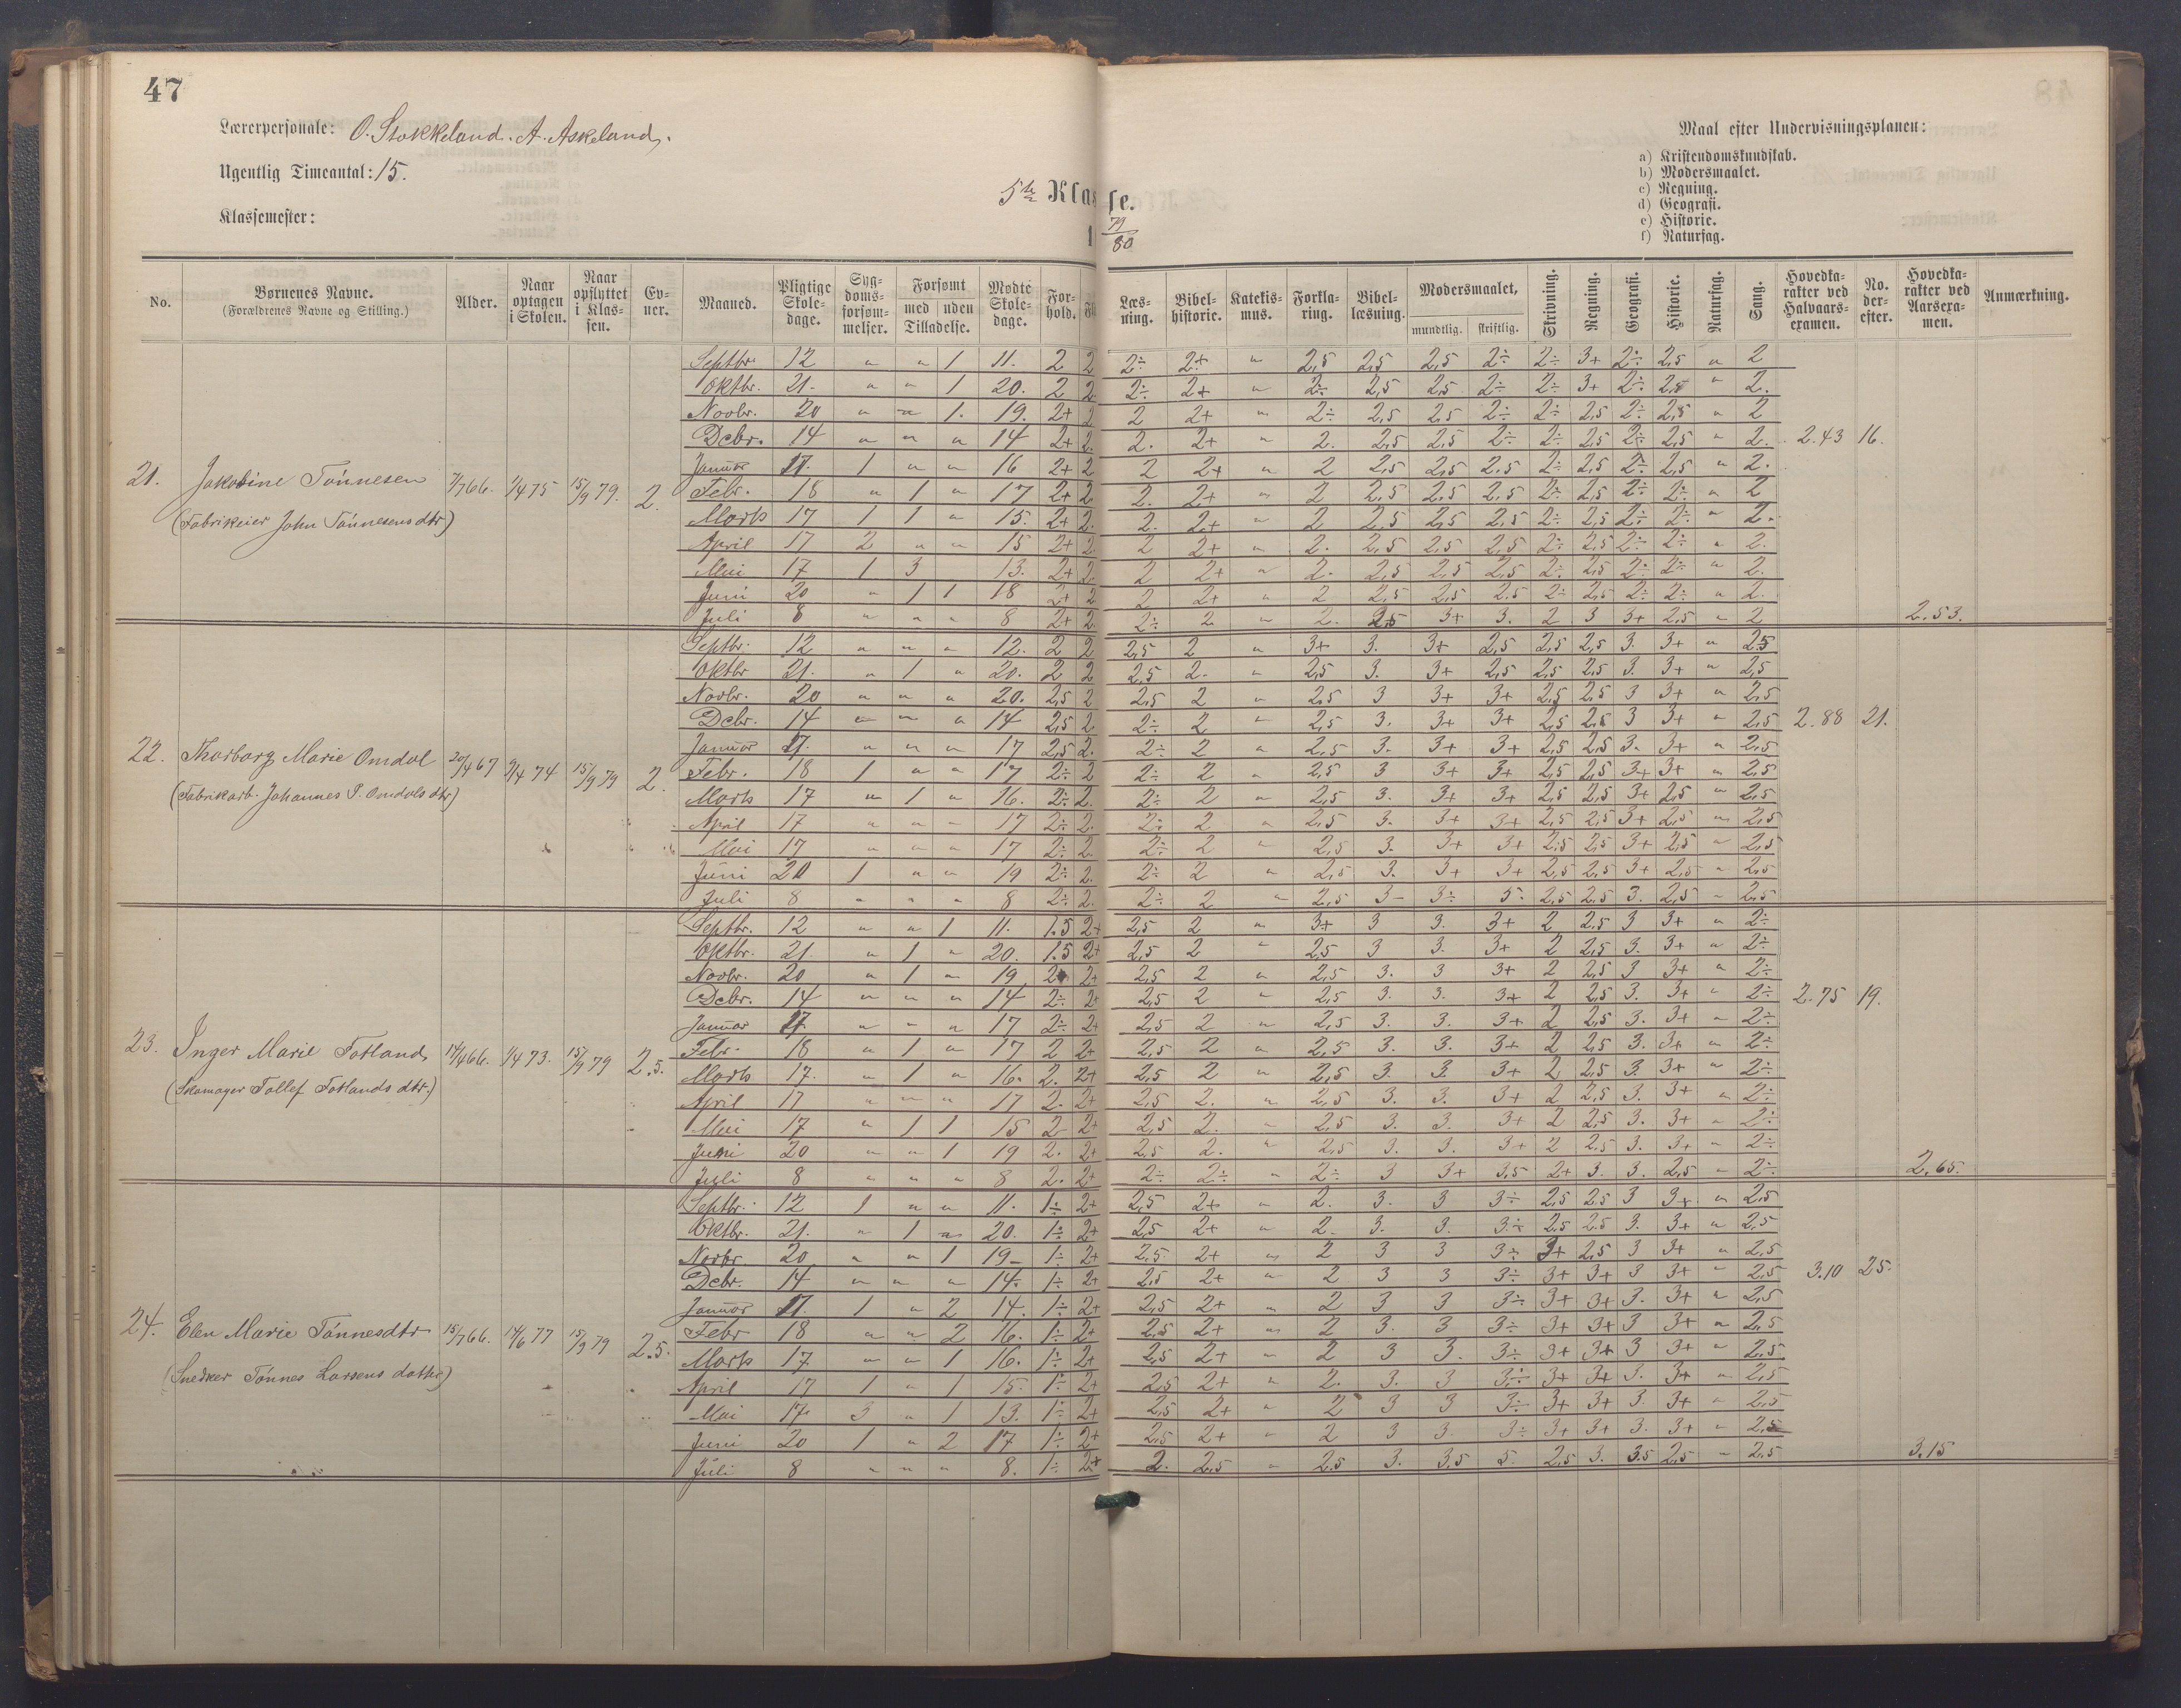 47
Lærerpersonale: O. Stokkeland. A. Askeland.
Ugentlig Timeantal: 15.
Klassemester:
5te Klasse.
79/80
Maal efter Undervisningsplanen:
a) Kristendomskundskab.
b) Modersmaalet.
c) Regning.
d) Geografi.
e) Historie.
f) Naturfag.
No. Børnenes Navne. (Forældrenes Navne og Stilling.) Alder. Naar optagen i Skolen. Naar opflyttet i Klassen. Evner. Maaned. Pligtige Skoledage. Sygdomsforsømmelser. Forsømt med uden Tilladelse. Mødte Skoledage. Forhold. Læsning. Bibelhistorie. Katekismus. Forklaring. Bibellæsning. Modersmaalet, mundtlig. skriftlig. Skrivning. Regning. Geografi. Historie. Naturfag. Sang. Hovedkarakter ved Halvaarsexamen. No. derefter. Hovedkarakter ved Aarsexamen. Anmærkning.
21. Jakobine Tønnesen 7/7 66. 1/4 75 15/9 79. 2.
(Fabrikeier John Tønnesens dtr)
Septbr. 12 " " 1 11. 2 2 2÷ 2+ " 2,5 2,5 2,5 2÷ 2÷ 3+ 2÷ 2,5 " 2
Oktbr. 21. " " 1 20. 2 2 2÷ 2+ " 2÷ 2,5 2,5 2÷ 2÷ 3+ 2÷ 2,5 " 2.
Novbr. 20 " " 1. 19. 2+ 2 2 2+ " 2÷ 2,5 2,5 2÷ 2÷ 2,5 2÷ 2,5 " 2
Debr. 14 " " " 14 2+ 2. 2. 2+ " 2. 2,5 2,5 2÷ 2÷ 2,5 2÷ 2,5 " 2. 2.43 16.
Januar 17. 1 " " 16 2+ 2 2 2+ " 2 2,5 2,5 2.5 2÷ 2,5 2÷ 2,5 " 2.
Febr. 18 " 1 " 17 2+ 2 2. 2+ " 2 2.5 2.5 2,5 2÷ 2,5 2÷ 2÷ " 2
Marts 17 1 1 " 15. 2+ 2. 2. 2+ " 2 2,5 2,5 2,5 2÷ 2,5 2÷ 2÷ " 2.
April 17 2 " " 15 2+ 2. 2 2+ " 2. 2,5 2,5 2,5 2÷ 2,5 2÷ 2÷ " 2.
Mai 17 1 3 13. 2+ 2. 2 2+ " 2. 2,5 2,5 2,5 2÷ 2,5 2÷ 2÷ " 2.
Juni 20 " 1 1 18 2+ 2 2 2+ " 2 2,5 2,5 2,5 2÷ 2,5 2÷ 2÷ " 2.
Juli 8 " " " 8 2+ 2. 2÷ 2 " 2. 2,5 3+ 3. 2 3 3+ 2,5 " 2 2.53.
22. Thorborg Marie Omdal 20/4 67 9/4 74 15/9 79 2.
(Fabrikarb. Johannes P. Omdals dtr)
Septbr. 12 " " " 12. 2 2 2,5 2 " 3+ 3. 3+ 2,5 2,5 2,5 3. 3+ " 2.5
Oktbr 21. " 1 " 20. 2 2 2,5 2. " 2,5 3. 3+ 2,5 2,5 2,5 3. 3+ " 2,5
Novbr. 20 " " " 20. 2,5 2 2,5 2 " 2,5 3 3+ 3+ 2,5 2,5 3 3+ " 2,5
Debr. 14 " " " 14 2,5 2 2÷ 2 " 2,5 3. 3+ 3+ 2,5 2,5 3 3+ " 2,5 2.88 21.
Januar 17. " " " 17 2,5 2. 2÷ 2 " 2,5 3. 3+ 3+ 2,5 2,5 3. 3+ " 2,5
Febr. 18 1 " " 17 2÷ 2 2÷ 2 " 2,5 3 3+ 3+ 2,5 2,5 3+ 3+ " 2,5
Marts 17 " 1 " 16. 2÷ 2. 2÷ 2 " 2,5 3. 3+ 3+ 2,5 2,5 3+ 2,5 " 2,5
April 17 " " " 17 2÷ 2. 2÷ 2 " 2,5 3. 3+ 3+ 2,5 2,5 3+ 2,5 " 2,5
Mai 17 " " " 17 2÷ 2. 2÷ 2 " 2,5 3. 3+ 3+ 2,5 2,5 3+ 2,5 " 2,5
Juni 20 1 " " 19 2÷ 2. 2÷ 2 " 2,5 3. 3+ 3+ 2,5 2,5 3+ 2,5 " 2,5
Juli 8 " " " 8 2÷ 2. 2÷ 2 " 2,5 3- 3÷ 5- 2,5 2,5 3. 2,5 " 2,5
23. Inger Marie Fotland 17/4 66. 1/4 73. 15/9 79 2.5.
(Skomager Tollef Fotlands dtr.)
Septbr. 12 " " 1 11. 1.5 2+ 2,5 2 " 3+ 3 3. 3+ 2 2,5 3 3+ " 2÷
Oktbr. 21. " 1 " 20. 1.5 2+ 2,5 2 " 2,5 3 3. 3+ 2 2,5 3. 3+ " 2÷
Novbr. 20 " 1 " 19 2 2+ 2,5 2 " 2,5 3. 3 3+ 2 2,5 3 3+ " 2÷
Debr. 14 " " " 14 2÷ 2+ 2,5 2 " 2,5 3. 3. 3+ 2 2,5 3. 3+ " 2÷ 2.75 19.
Januar 17. " " " 17 2÷ 2+ 2,5 2 " 2,5 3. 3. 3+ 2 2,5 3. 3+ " 2÷
Febr. 18 " 1 " 17 2 2+ 2,5 2 " 2,5 3. 3. 3+ 2 2,5 3. 3+ " 2÷
Marts 17. " 1 " 16. 2. 2+ 2,5 2 " 2,5 3. 3. 3+ 2 2,5 3. 3+ " 2÷
April 17 " " " 17 2. 2+ 2,5 2. " 2,5 3. 3. 3+ 2 2,5 3. 3+ " 2÷
Mai 17 " 1 1 15 2 2+ 2,5 2. " 2,5 3. 3. 3+ 2 2,5 3. 3+ " 2÷
Juni 20 " " 1 19 2. 2+ 2,5 2. " 2,5 3. 3. 3+ 2 2.5 3. 3+ " 2÷
Juli 8 " " " 8 2. 2+ 2÷ 2÷ " 2÷ 3 3+ 3,5 2+ 3. 3. 2,5 " 2÷ 2,65.
24. Elen Marie Tønnesdtr 15/7 66. 14/6 77 15/9 79 2.5.
(Snedker Tønnes Larsens datter)
Septbr. 12 1 " " 11. 1÷ 2+ 2,5 2+ " 2. 3. 3 3÷ 2,5 2,5 3 3+ " 2,5
Oktbr. 21. " 1 " 20. 1÷ 2+ 2,5 2+ " 2. 3. 3. 3÷ 2,5 2,5 3. 3+ " 2,5
Novbr. 20 " " 1 19- 1÷ 2+ 2,5 2+ " 2 3 3 3÷ 3+ 2,5 3 3+ " 2,5
Debr. 14 " " " 14. 1÷ 2+ 2,5 2+ " 2 3 3 3÷ 3+ 3+ 3 3+ " 2,5 3.10 25.
Januar 17. 1 " 2 14. 1÷ 2+ 2,5 2+ " 2 3 3 3÷ 3+ 3+ 3. 3+ " 2,5
Febr 18 " " 2 16. 1÷ 2+ 2,5 2+ " 2 3. 3 3÷ 3+ 3+ 3 3+ " 2,5
Marts 17. " " 1 16. 1÷ 2+ 2,5 2+ " 2 3 3. 3÷ 3+ 3+ 3 3+ " 2,5
April 17 1 " 1 15. 1÷ 2+ 2,5 2+ " 2. 3. 3 3÷ 3+ 3+ 3. 3+ " 2,5
Mai 17. 3 " 1 13. 1÷ 2+ 2,5 2+ " 2 3 3 3÷ 3+ 3+ 3. 3+ " 2,5
Juni 20 1 " 2 17 1÷ 2+ 2,5 2+ " 2 3 3. 3÷ 3+ 3+ 3. 3+ " 2,5
Juli 8 " " " 8. 1÷ 2+ 2. 2.5 " 2.5 3. 3,5 5. 2,5 3. 3.5 2,5 " 2.5 3.15